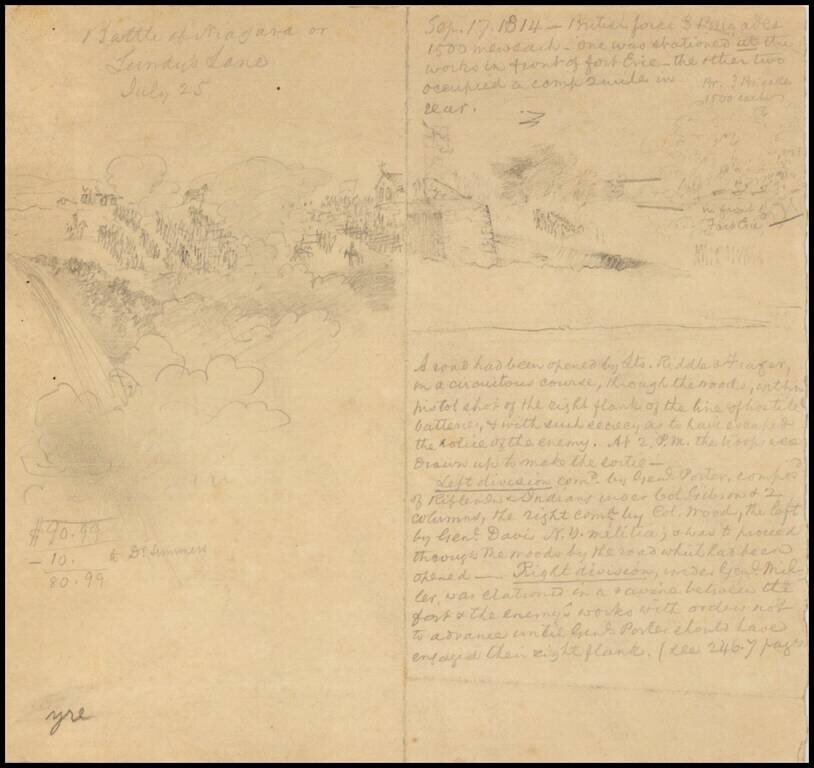 Battle of Niagara or
Lundys Lane
July 25
$90.99
- 10. to Dr. Simmons
80.99
yre
Sep. 17. 1814 - British force 3 Brigades
1500 men each - one was stationed at the
works in front of fort Erie - the other two
occupied a camp 2 mile in
rear.
Br. 3 Brigades
1500 each
in front of
Fort Erie
A road had been opened by Lts. Riddle & Frazer,
in a circuitous course, through the woods, within
pistol shot of the right flank of the line of hostile
batteries, & with such secrecy as to have escaped
the notice of the enemy. At 2. P.M. the troops were
drawn up to make the sortie -
Left division comd. by Genl. Porter, compos'd
of Riflemen & Indians under Col. Gibson & 2
columns, the right comd. by Col. Wood, the left
by Genl. Davis N.Y. militia; & was to proceed
through the woods by the road which had been
opened — Right division, under Genl. Mil-
ler, was stationed in a ravine between the
fort & the enemy's works with orders not
to advance until Genl. Porter should have
engaged their right flank. (see 246.7 pages